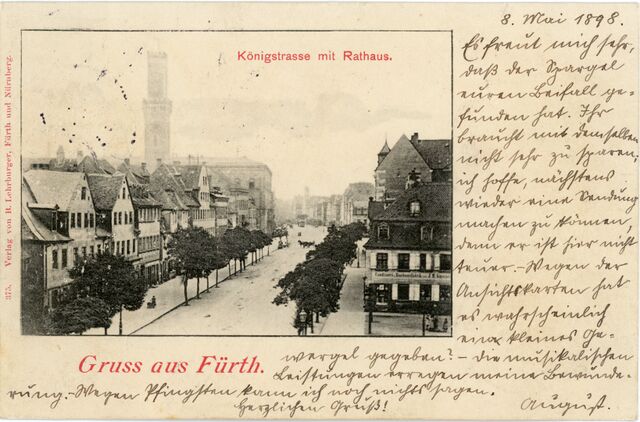 8. Mai 1898.
Königstrasse mit Rathaus.
Es freut mich sehr,
daß der Spargel
euren Beifall ge-
funden hat. Ihr
braucht mit demselben
nicht sehr zu sparen,
ich hoffe, nächstens
wieder eine Sendung
machen zu können
denn er ist hier nicht
teuer. – Wegen der
Ansichtskarten hat
es wahrscheinlich
ein kleines Ge-
wergel gegeben? – Die musikalischen
Leistungen erregen meine Bewunde-
rung. – Wegen Pfingsten kann ich noch nichts sagen.
Herzlichen Gruß!
August.
Gruss aus Fürth.
375. Verlag von B. Lehrburger, Fürth und Nürnberg.